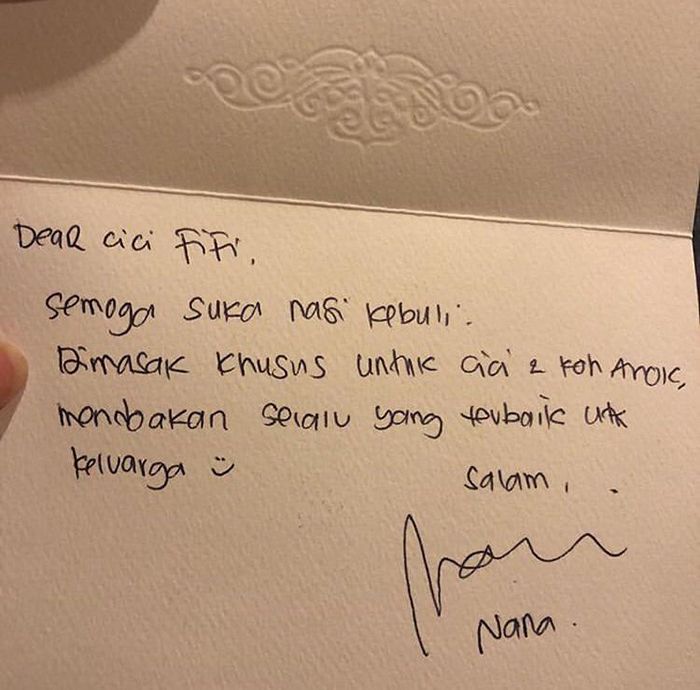 Dear cici FiFi,
semoga suka nasi kebuli.
Dimasak khusus untuk cici & koh Ahok,
mendoakan selalu yang terbaik utk
keluarga :)
salam,
Nana.